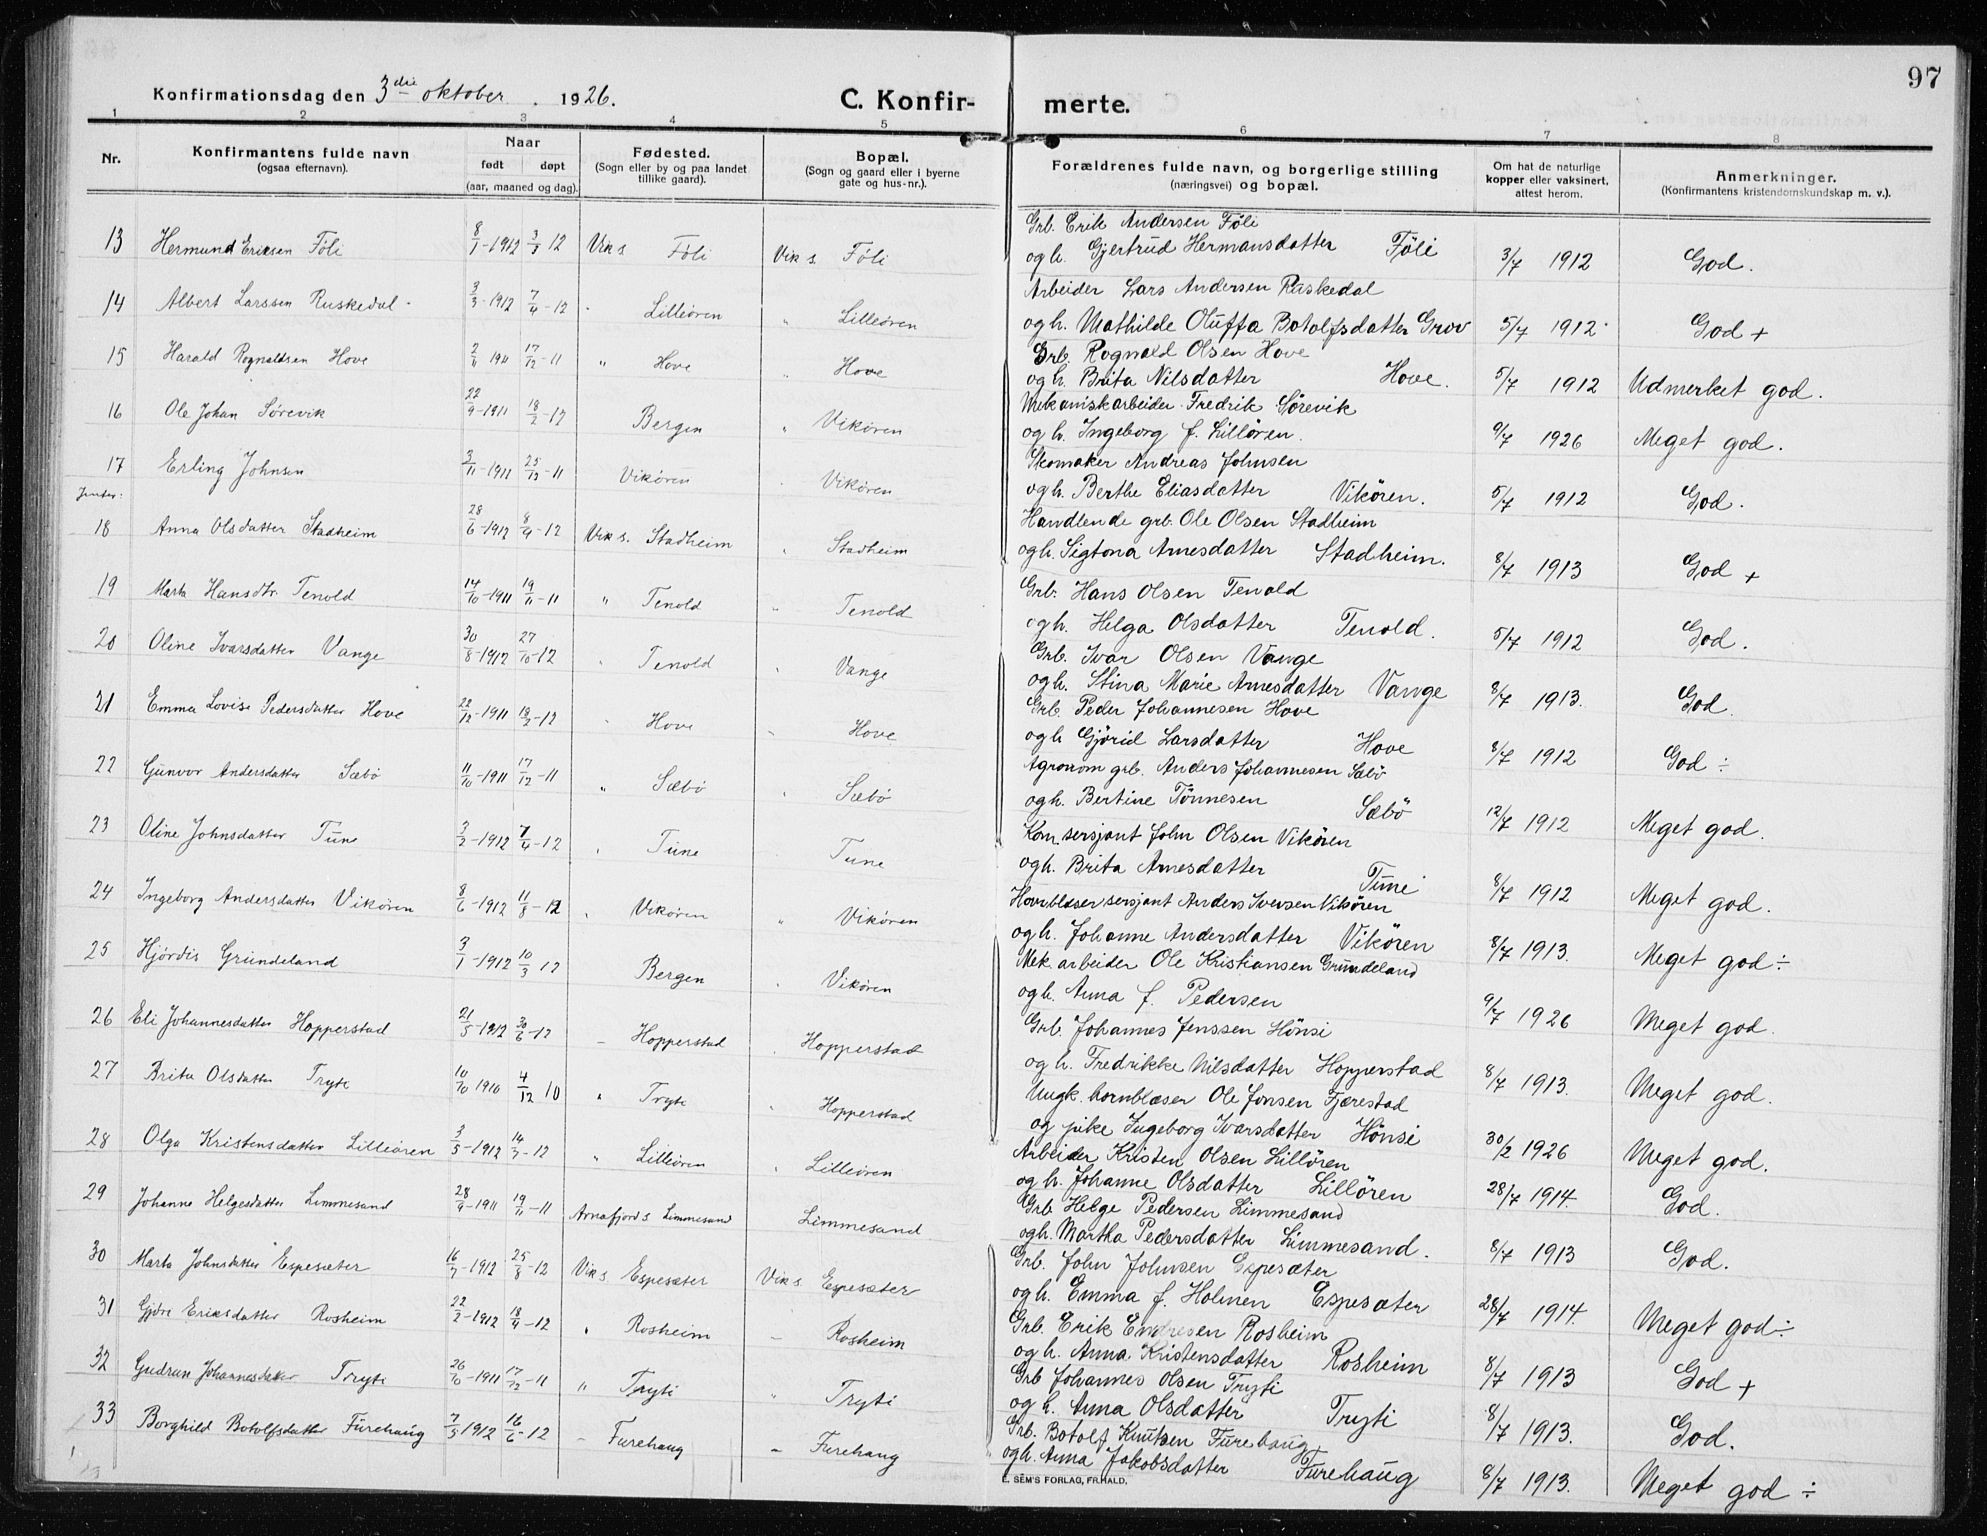 97
Konfirmationsdag den 3die oktober 1926.
C. Konfir- merte.
1 2 3 4 5 6 7 8
Nr.
Konfirmantens fulde navn
(ogsaa efternavn).
Naar
født døpt
(aar, maaned og dag).
Fødested.
(Sogn eller by og paa landet
tillike gaard).
Bopæl.
(Sogn og gaard eller i byerne
gate og hus-nr.).
Forældrenes fulde navn, og borgerlige stilling
(næringsvei) og bopæl.
Om hat de naturlige
kopper eller vaksinert,
attest herom.
Anmerkninger.
(Konfirmantens kristendomskundskap m. v.).
13 Hermund Eriksen Föli 8/1-1912 3/3 12 Vik s. Föli Vik s. Föli
Grb. Erik Andersen Föli
og h. Gjertrud Hermansdatter Föli 3/7 1912 God.
14 Albert Larssen Ruskedal 3/3-1912 7/4-12 " Lilleören " Lilleören
Arbeider Lars Andersen Raskedal
og h. Mathilde Oluffa Botolfsdatter Grov 5/7 1912 God +
15 Harald Rognaldsen Hove 1911 17/12-11 " Hove " Hove
Grb. Rognald Olsen Hove
og h. Brita Nilsdatter Hove. 5/7 1912 Udmerket god.
16 Ole Johan Sörevik 22/9-1911 18/2-12 Bergen " Vikören
Mekaniskarbeider Fredrik Sörevik
og h. Ingeborg f. Lillören. 9/7 1926 Meget god.
17 Erling Johnsen 3/11-1911 25/12-11 Vikören Vikören
Skomaker Andreas Johnsen
og h. Berthe Eliasdatter Vikören. 5/7 1912 God.
Jenter:
18 Anna Olsdatter Stadheim 28/6-1912 8/9-12 Vik s. Stadheim " Stadheim
Handlende grb. Ole Olsen Stadheim
og h. Sigtona Arnesdatter Stadheim. 8/7 1913 God +
19 Marta Hansdtr. Tenold 14/10-1911 19/11-11 " Tenold " Tenold
Grb. Hans Olsen Tenold
og h. Helga Olsdatter Tenold. 5/7 1912 God.
20 Oline Ivarsdatter Vange 30/8-1912 27/10-12 " Tenold " Vange
Grb. Ivar Olsen Vange
og h. Stina Marie Arnesdatter Vange 8/7 1913. God.
21 Emma Lovise Pedersdatter Hove 22/12-1911 18/2-12 " Hove " Hove
Grb. Peder Johannesen Hove
og h. Gjörid Larsdatter Hove 8/7 1912 God ÷
22 Gunvor Andersdatter Sæbö 11/10-1911 17/12-11 " Sæbö " Sæbö
Agronom grb. Anders Johannesen Sæbö
og h. Bertine Tönnesen Sæbö 12/7 1912 Meget god.
23 Oline Johnsdatter Tune 3/2-1912 7/4-12 " Tune Tune
Kom.sersjant John Olsen Vikören
og h. Brita Arnesdatter Tune 8/7 1912 Meget god.
24 Ingeborg Andersdatter Vikören 8/6-1912 11/8-12 " Vikören " Vikören
Hornblæser sersjant Anders Iversen Vikören
og h. Johanne Andersdatter Vikören 8/7 1913. Meget god ÷
25 Hjördis Grundeland 3/1-1912 10/3 12 Bergen " Vikören
Mek. arbeider Ole Kristiansen Grundeland
og h. Anna f. Pedersen 9/7 1926 Meget god.
26 Eli Johannesdatter Hopperstad 21/5-1912 30/6-12 " Hopperstad " Hopperstad
Grb. Johannes Jenssen Hönsi
og h. Fredrikke Nilsdatter Hopperstad 8/7 1913. Meget god.
27 Brita Olsdatter Tryti 10/10 1910 4/12 10 " Tryti " Hopperstad
Ungk. hornblæser Ole Jonsen Tjærestad
og pike Ingeborg Ivarsdatter Hönsi 30/2 1926 Meget god.
28 Olga Kristensdatter Lilleören 3/5-1912 14/7-12 " Lilleören " Lilleören
Arbeider Kristen Olsen Lillören
og h. Johanne Olsdatter Lillören 28/7 1914. God.
29 Johanne Helgesdatter Limmesand 28/9-1911 19/11-11 Arnafjord s. Limmesand Limmesand
Grb. Helge Pedersen Limmesand
og h. Martha Pedersdatter Limmesand. 8/7 1913 God.
30 Marta Johnsdatter Espesæter 16/7-1912 25/8-12 Vik s. Espesæter Vik s. Espesæter
Grb. John Johnsen Espesæter
og h. Emma f. Holmen Espesæter 28/7 1914. Meget god ÷
31 Gjöre Eriksdatter Rosheim 22/2-1912 18/4-12 " Rosheim " Rosheim
Grb. Erik Endresen Rosheim
og h. Anna Kristensdatter Rosheim 8/7 1913 God +
32 Gudrun Johannesdatter Tryti 26/10-1911 17/12-11 " Tryti " Tryti
Grb Johannes Olsen Tryti
og h. Anna Olsdatter Tryti 8/7 1913. God.
33 Borghild Botolfsdatter Furehaug 7/5 1912 16/6-12 " Furehaug " Furehaug
Grb. Botolf Knutsen Furehaug
og h. Anna Jakobsdatter Furehaug 8/7 1913. Meget god ÷
E. SEM'S FORLAG, FR.HALD.